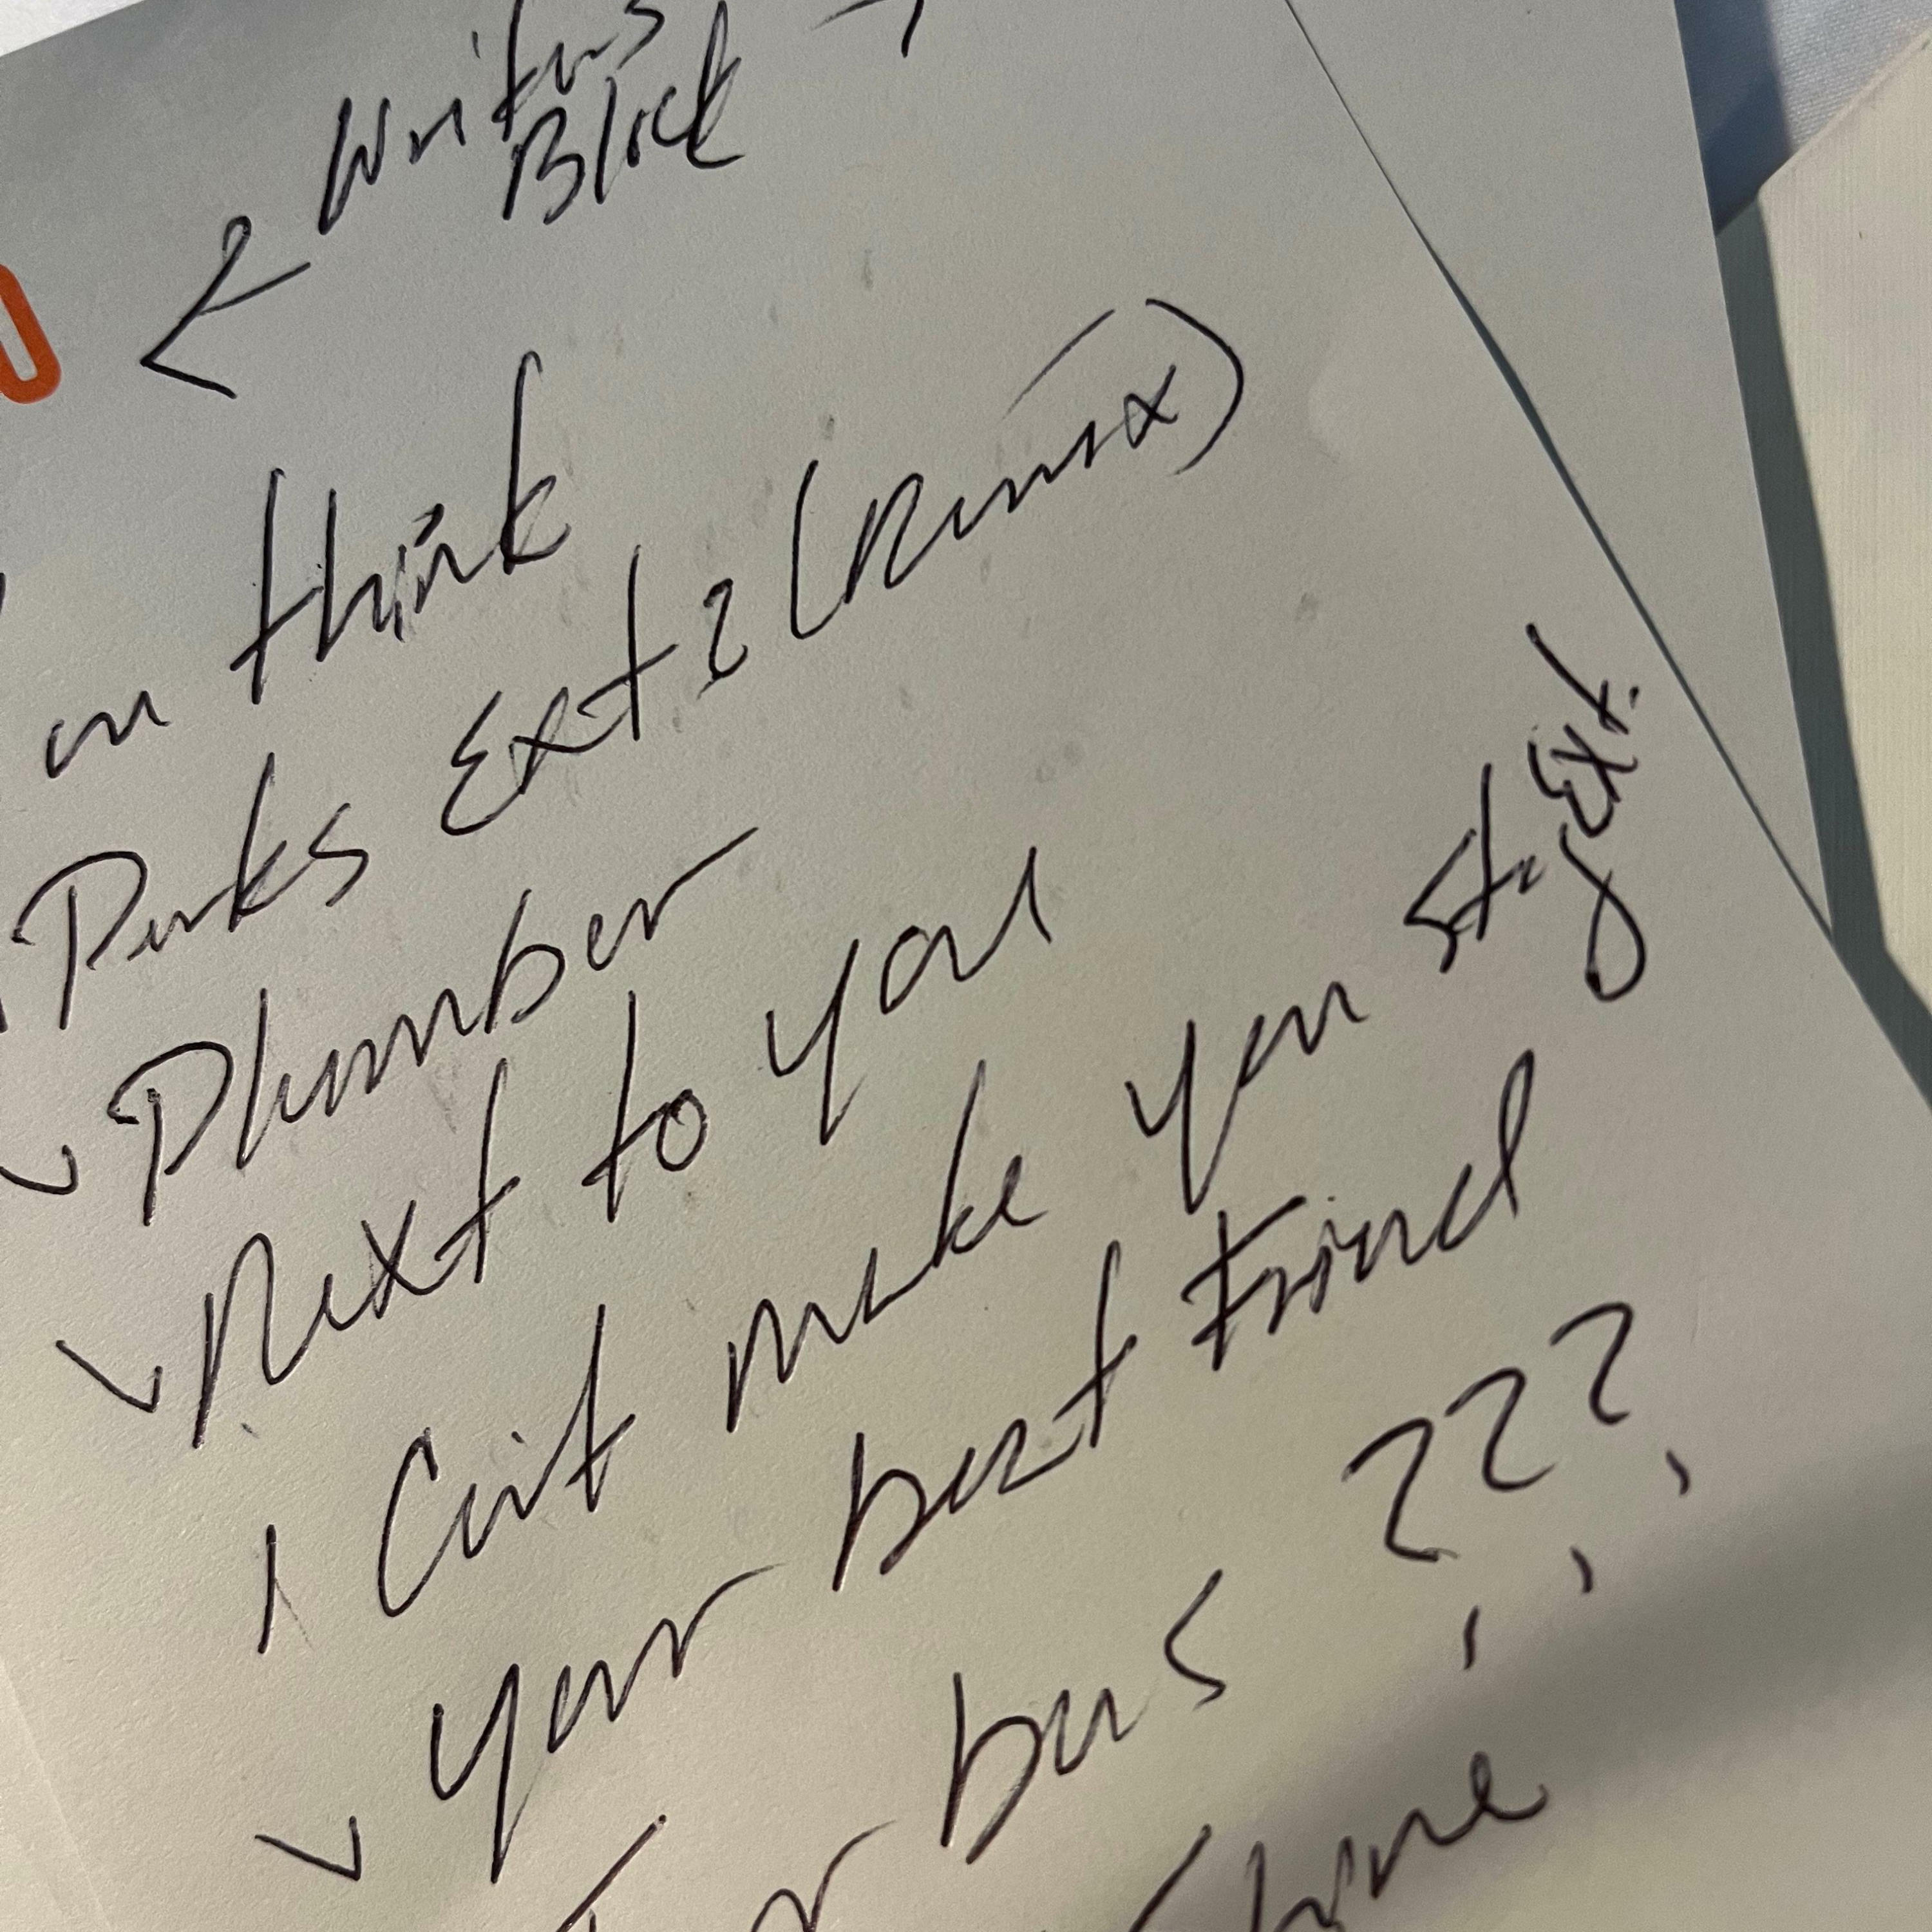 Writers
Block
think
Perks Ext 2 (Remix)
Plumber
Next to you
I Cant make you stay Ext.
Your best Friend
bus ???